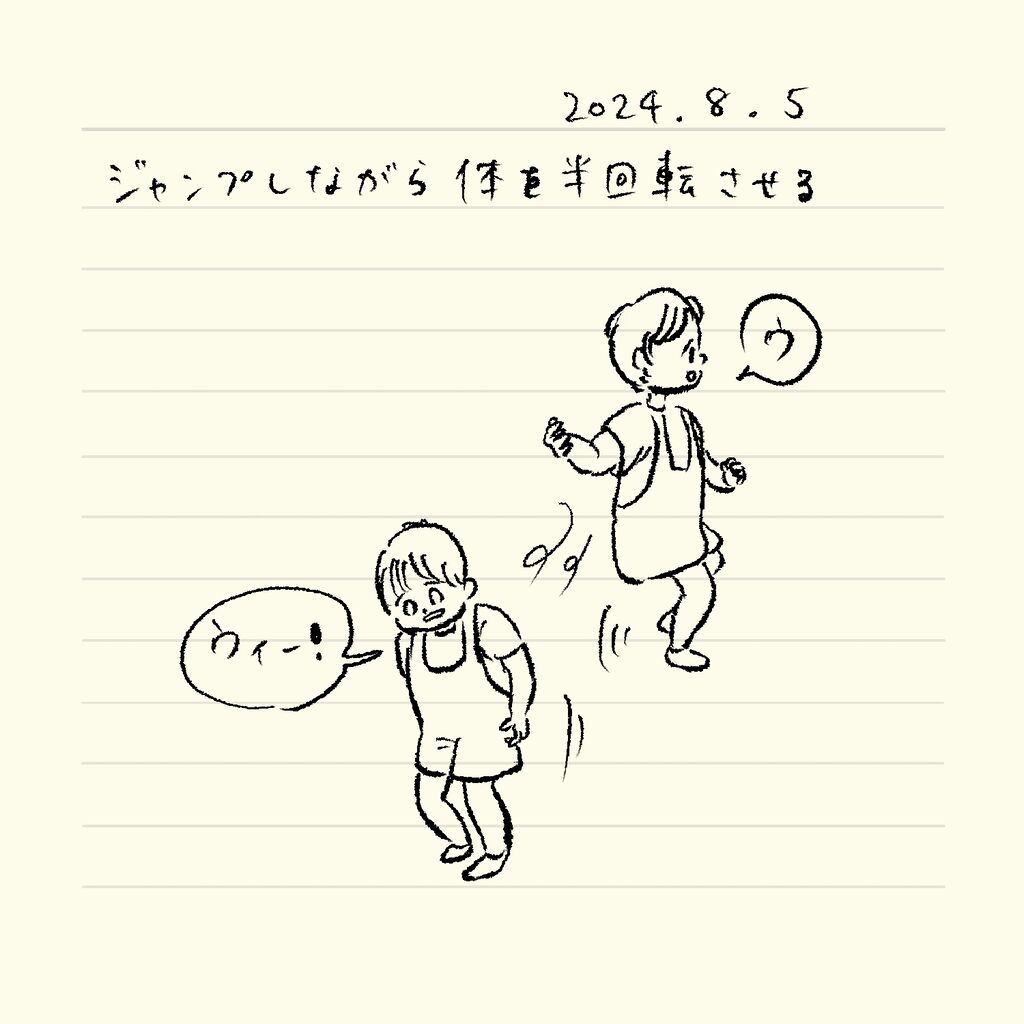 2024.8.5
ジャンプしながら体を半回転させる
ウ
ウィー!